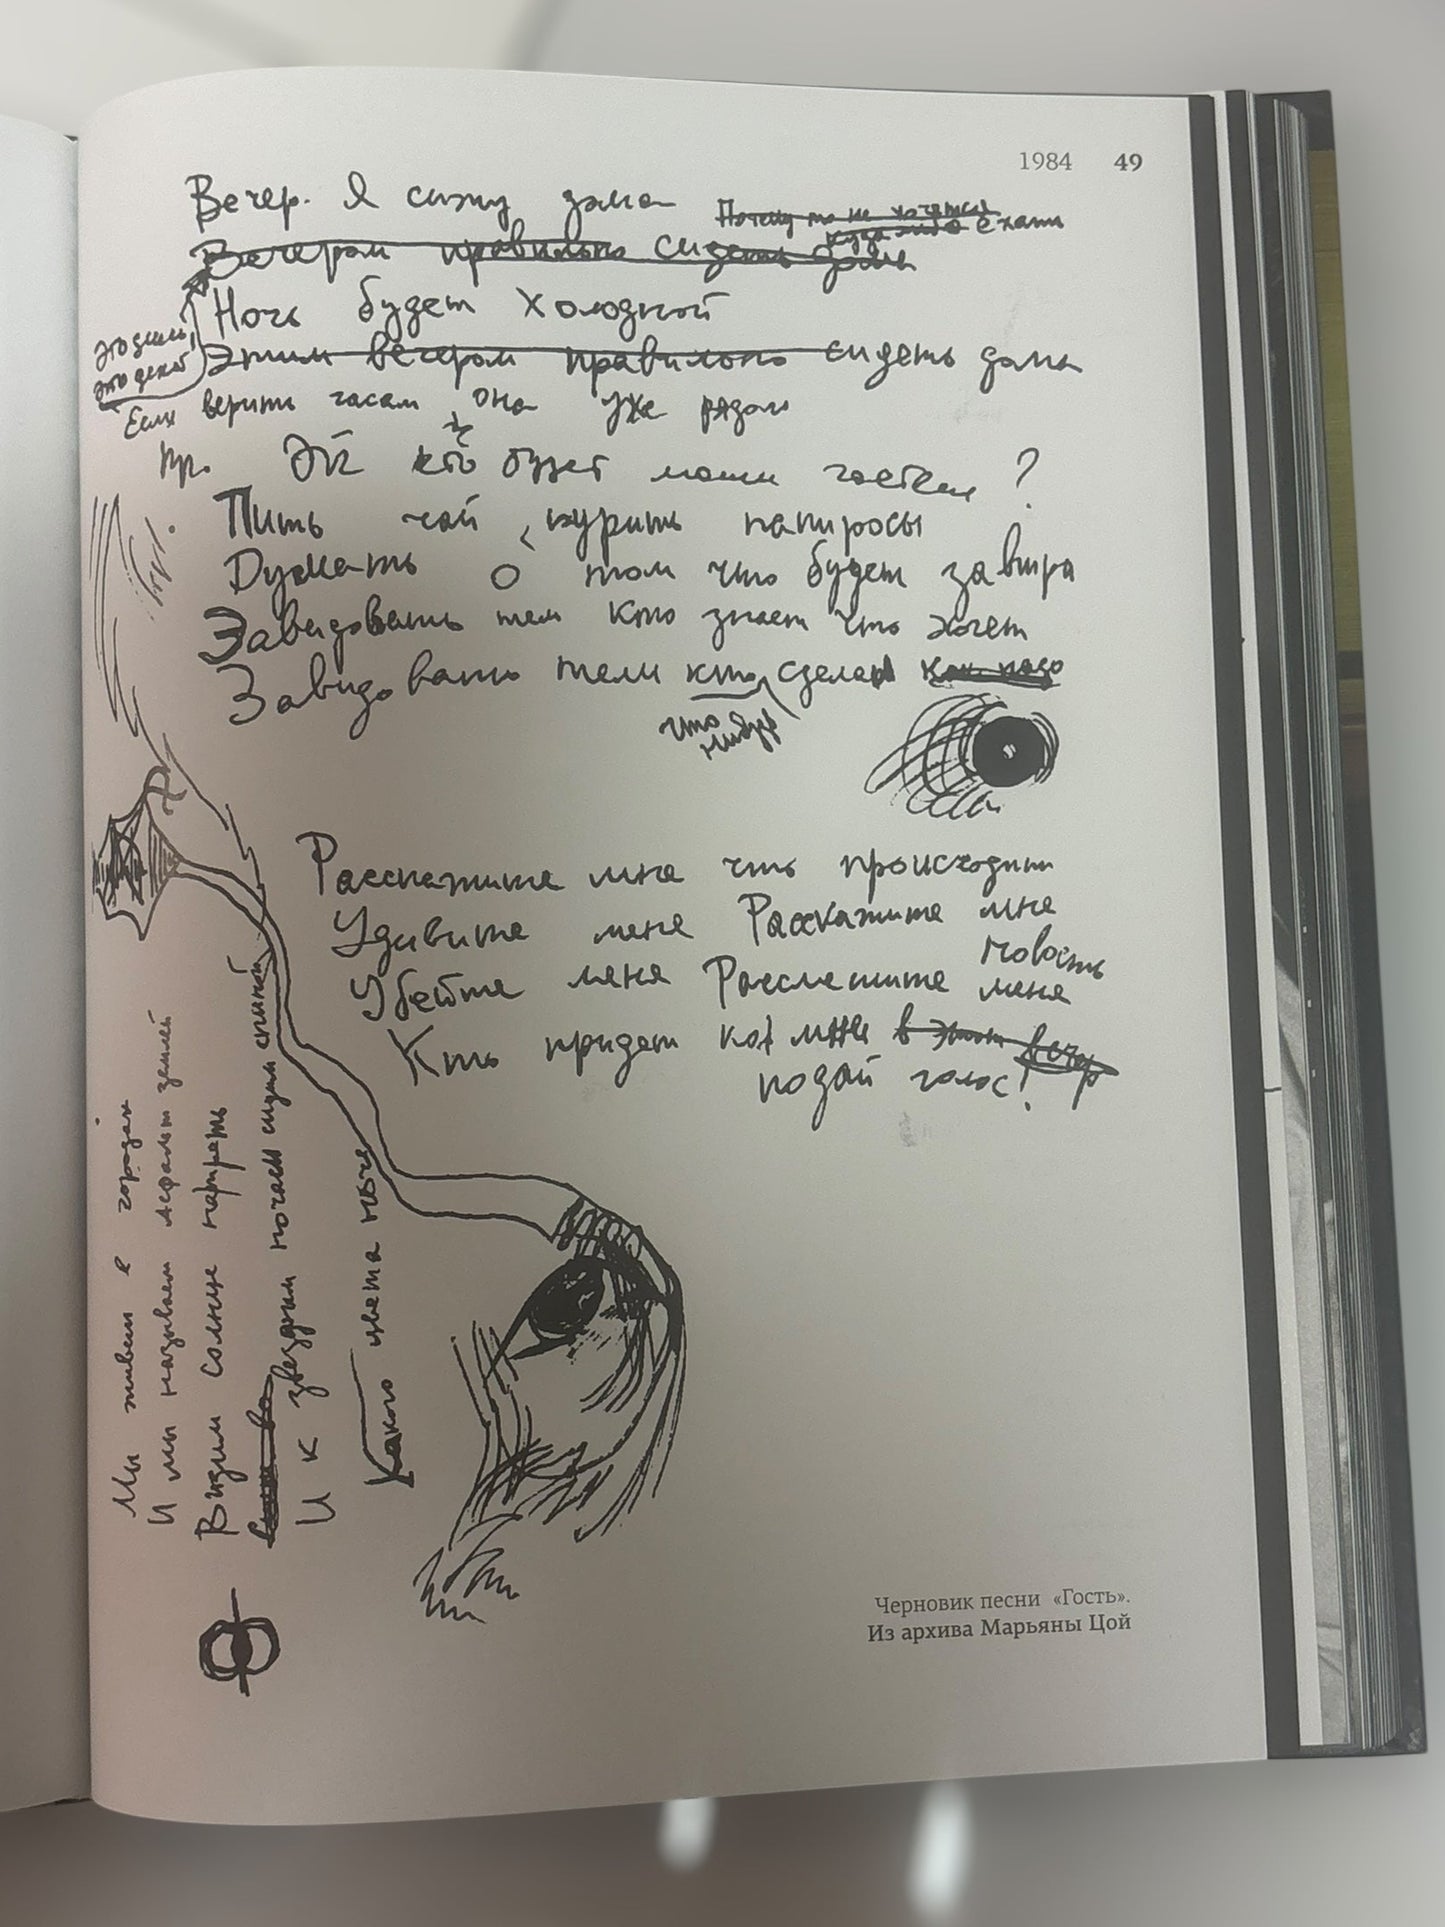 1984 49
Вечер. Я сижу дома
Почему то не хочется
куда либо ехать
Вечером правильно сидеть дома
Ночь будет холодной
это зима,
это декаб
Этим вечером правильно сидеть дома
Если верить часам, она уже рядом
Пр. Эй кто будет моим гостем?
Пить чай, курить папиросы
Думать о том что будет завтра
Завидовать тем кто знает что хочет
Завидовать тем кто сделал как надо
что
нибудь
Расскажите мне что происходит
Удивите меня Расскажите мне
новость
Убейте меня Рассмешите меня
Кто придет ко мне в этот вечер
подай голос!
Мы живем в городах
И мы называем асфальт землей
Видим солнце
И к звездам ночам сидим спиной
Какого цвета ночь
Черновик песни «Гость».
Из архива Марьяны Цой